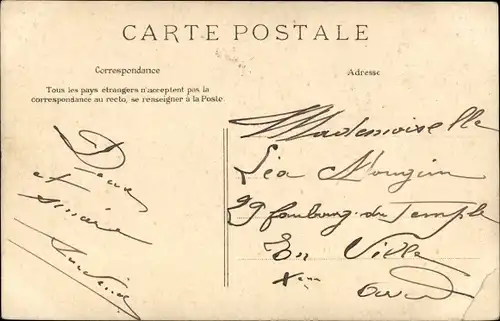 CARTE POSTALE
Correspondance
Tous les pays étrangers n'acceptent pas la
correspondance au recto, se renseigner à la Poste.
et sincère
Adresse
Mademoiselle
Léa Mougin
29 faubourg du Temple
En Ville
Xème